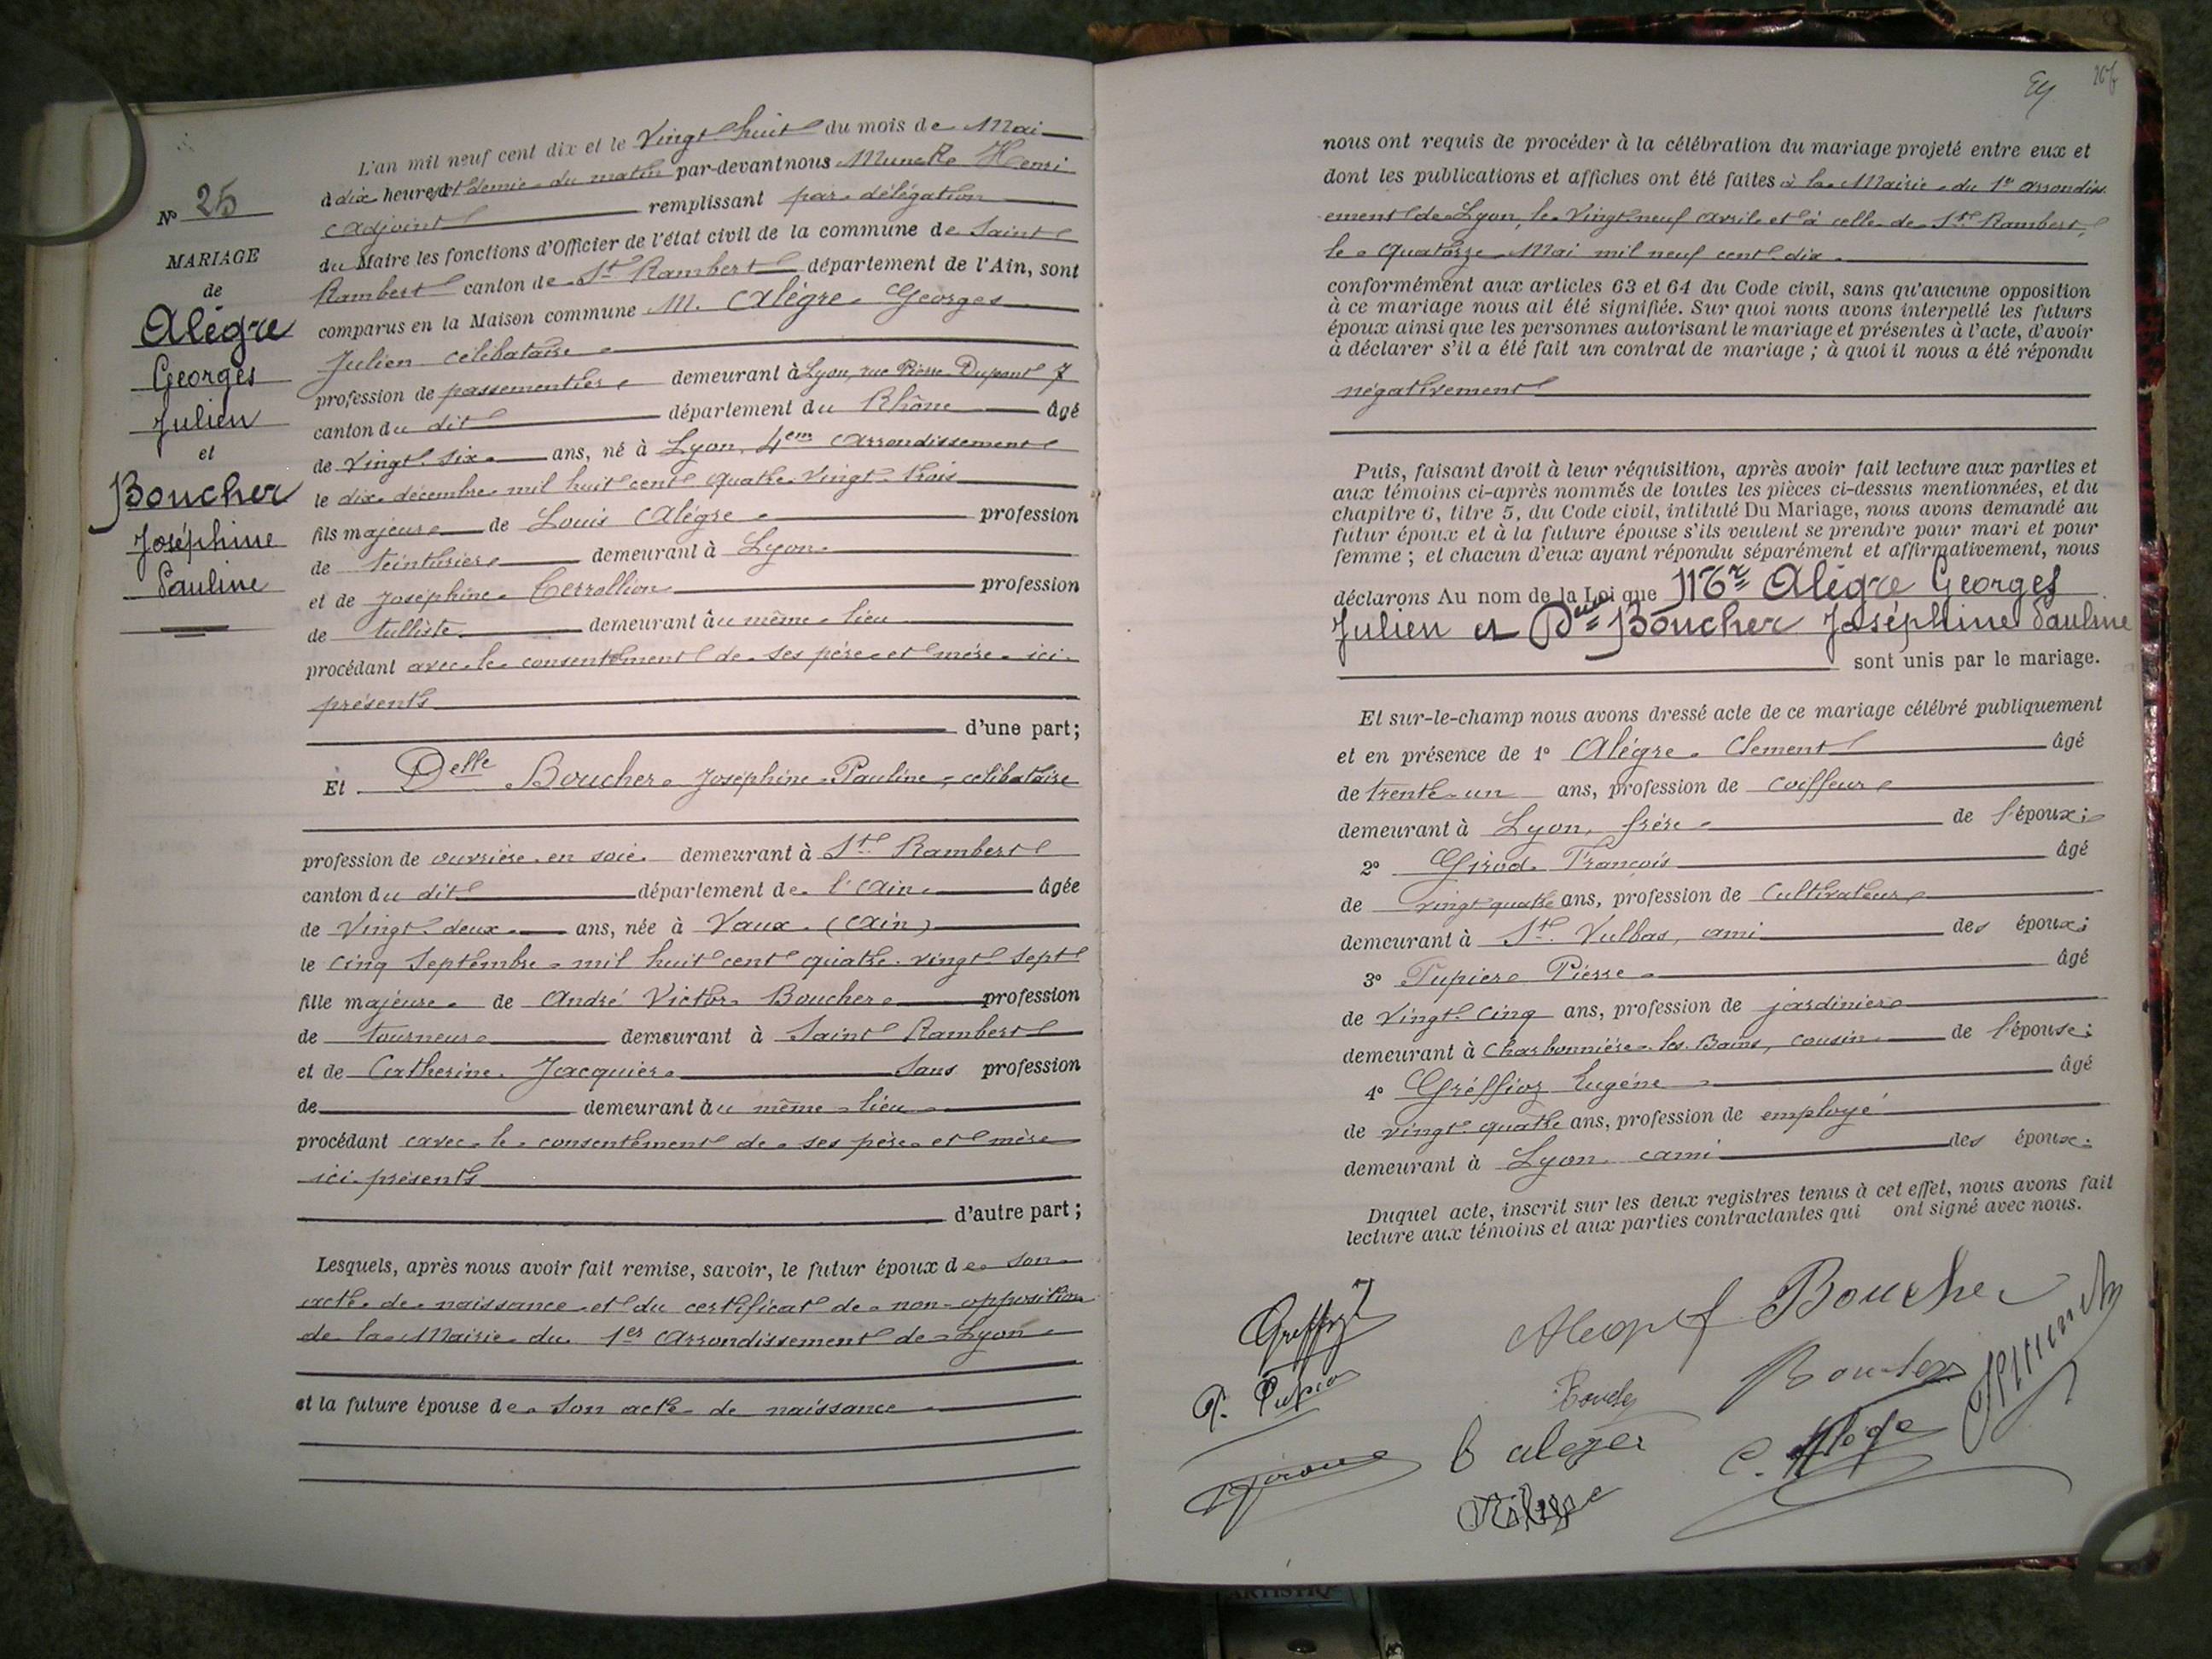 N° 25
MARIAGE
de
Alégre
Georges
Julien
et
Boucher
Joséphine
Pauline
L'an mil neuf cent dix et le Vingt huit du mois de Mai
à dix heures et demie du matin par-devant nous Muncke Henri
adjoint remplissant par délégation
du Maire les fonctions d'Officier de l'état civil de la commune de Saint
Rambert canton de St Rambert département de l'Ain, sont
comparus en la Maison commune M. Alégre Georges
Julien célibataire
profession de passementier demeurant à Lyon, rue Pierre Dupont 7
canton du dit département du Rhône âgé
de vingt six ans, né à Lyon, 4em arrondissement
le dix décembre mil huit cent quatre vingt trois
fils majeur de Louis Alégre profession
de teinturier demeurant à Lyon
et de Joséphine profession
de tulliste demeurant au même lieu
procédant avec le consentement de ses père et mère ici
présents
d'une part;
Et Delle Boucher Joséphine Pauline, célibataire
profession de ouvrière en soie demeurant à St Rambert
canton du dit département de l'Ain âgée
de Vingt deux ans, née à Vaux (Ain)
le cinq Septembre mil huit cent quatre vingt sept
fille majeure de André Victor Boucher profession
de tourneur demeurant à Saint Rambert
et de Catherine Jacquier Sans profession
de demeurant au même lieu
procédant avec le consentement de ses père et mère
ici présents
d'autre part;
Lesquels, après nous avoir fait remise, savoir, le futur époux de son
acte de naissance et du certificat de non-opposition
de la Mairie du 1er Arrondissement de Lyon
et la future épouse de son acte de naissance
nous ont requis de procéder à la célébration du mariage projeté entre eux et
dont les publications et affiches ont été faites à la Mairie du 1er arrondiss
ement de Lyon, le Vingt neuf avril et à celle de St Rambert,
le Quatorze Mai mil neuf cent dix
conformément aux articles 63 et 64 du Code civil, sans qu'aucune opposition
à ce mariage nous ait été signifiée. Sur quoi nous avons interpellé les futurs
époux ainsi que les personnes autorisant le mariage et présentes à l'acte, d'avoir
à déclarer s'il a été fait un contrat de mariage; à quoi il nous a été répondu
négativement
Puis, faisant droit à leur réquisition, après avoir fait lecture aux parties et
aux témoins ci-après nommés de toutes les pièces ci-dessus mentionnées, et du
chapitre 6, titre 5, du Code civil, intitulé Du Mariage, nous avons demandé au
futur époux et à la future épouse s'ils veulent se prendre pour mari et pour
femme; et chacun d'eux ayant répondu séparément et affirmativement, nous
déclarons Au nom de la Loi que Mr Alégre Georges
Julien et Delle Boucher Joséphine Pauline
sont unis par le mariage.
Et sur-le-champ nous avons dressé acte de ce mariage célébré publiquement
et en présence de 1° Alégre Clement âgé
de trente-un ans, profession de coiffeur
demeurant à Lyon, frère de l'époux;
2° Girod François âgé
de vingt quatre ans, profession de Cultivateur
demeurant à St Vulbas, ami des époux;
3° Tupier Pierre âgé
de Vingt cinq ans, profession de jardinier
demeurant à Charbonnière-les-Bains, cousin de l'épouse;
4° Gréffioz Eugéne âgé
de vingt quatre ans, profession de employé
demeurant à Lyon, ami des époux.
Duquel acte, inscrit sur les deux registres tenus à cet effet, nous avons fait
lecture aux témoins et aux parties contractantes qui ont signé avec nous.
Boucher
C. Alégre